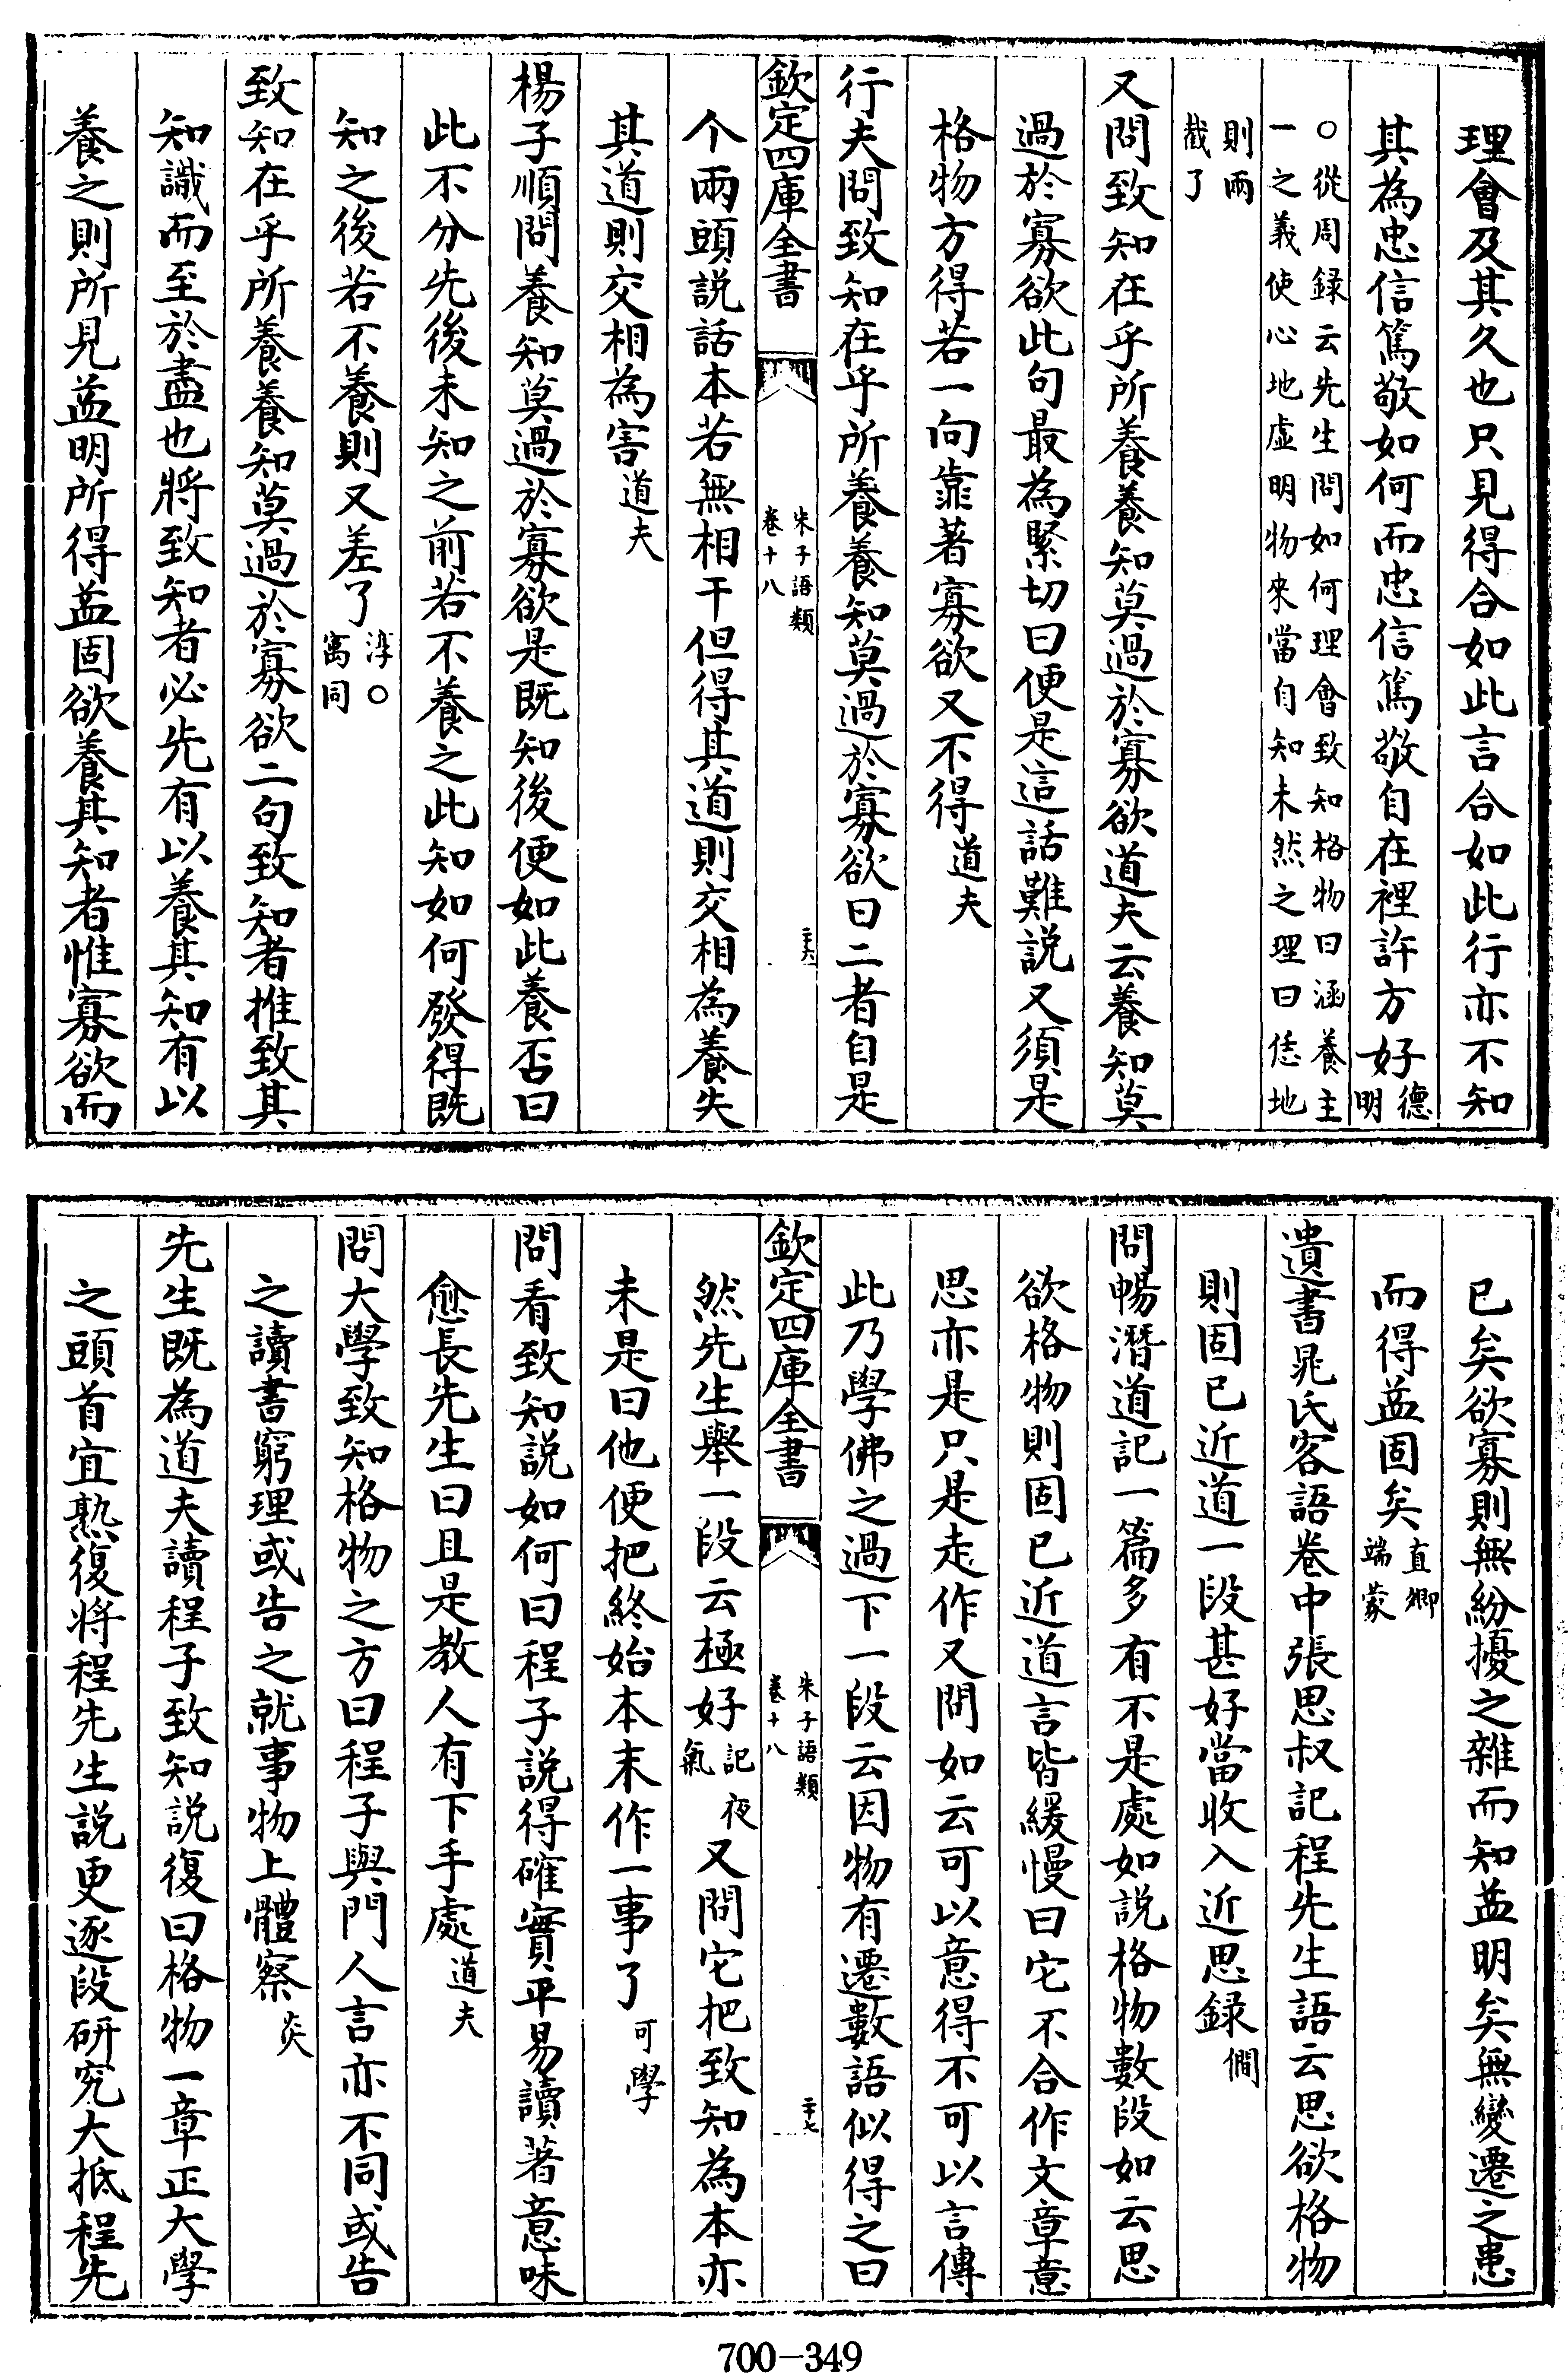 理會及其久也只見得合如此言合如此行亦不知
其為忠信篤敬如何而忠信篤敬自在裡許方好德明
○從周録云先生問如何理會致知格物曰涵養主
一之義使心地虛明物來當自知未然之理曰恁地
則兩
截了
又問致知在乎所養養知莫過於寡欲道夫云養知莫
過於寡欲此句最為緊切曰便是這話難說又須是
格物方得若一向靠著寡欲又不得道夫
行夫問致知在乎所養養知莫過於寡欲曰二者自是
欽定四庫全書
朱子語類
卷十八
二十六
个兩頭說話本若無相干但得其道則交相為養失
其道則交相為害道夫
楊子順問養知莫過於寡欲是既知後便如此養否曰
此不分先後未知之前若不養之此知如何發得既
知之後若不養則又差了淳○寓同
致知在乎所養養知莫過於寡欲二句致知者推致其
知識而至於盡也將致知者必先有以養其知有以
養之則所見益明所得益固欲養其知者惟寡欲而
已矣欲寡則無紛擾之雜而知益明矣無變遷之患
而得益固矣直卿端蒙
遺書晁氏客語卷中張思叔記程先生語云思欲格物
則固已近道一段甚好當收入近思録僩
問暢潛道記一篇多有不是處如說格物數段如云思
欲格物則固已近道言皆緩慢曰它不合作文章意
思亦是只是走作又問如云可以意得不可以言傳
此乃學佛之過下一段云因物有遷數語似得之曰
欽定四庫全書
朱子語類
卷十八
二十七
然先生舉一段云極好記夜氣又問它把致知為本亦
未是曰他便把終始本末作一事了可學
問看致知說如何曰程子說得確實平易讀著意味
愈長先生曰且是教人有下手處道夫
問大學致知格物之方曰程子與門人言亦不同或告
之讀書窮理或告之就事物上體察炎
先生既為道夫讀程子致知說復曰格物一章正大學
之頭首宜熟復將程先生說更逐段研究大抵程先
700-349